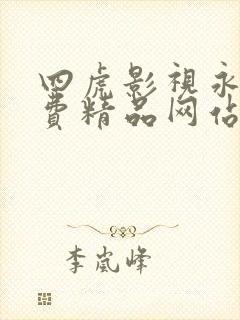 四虎影視永
費精品网佔
李嵐峰